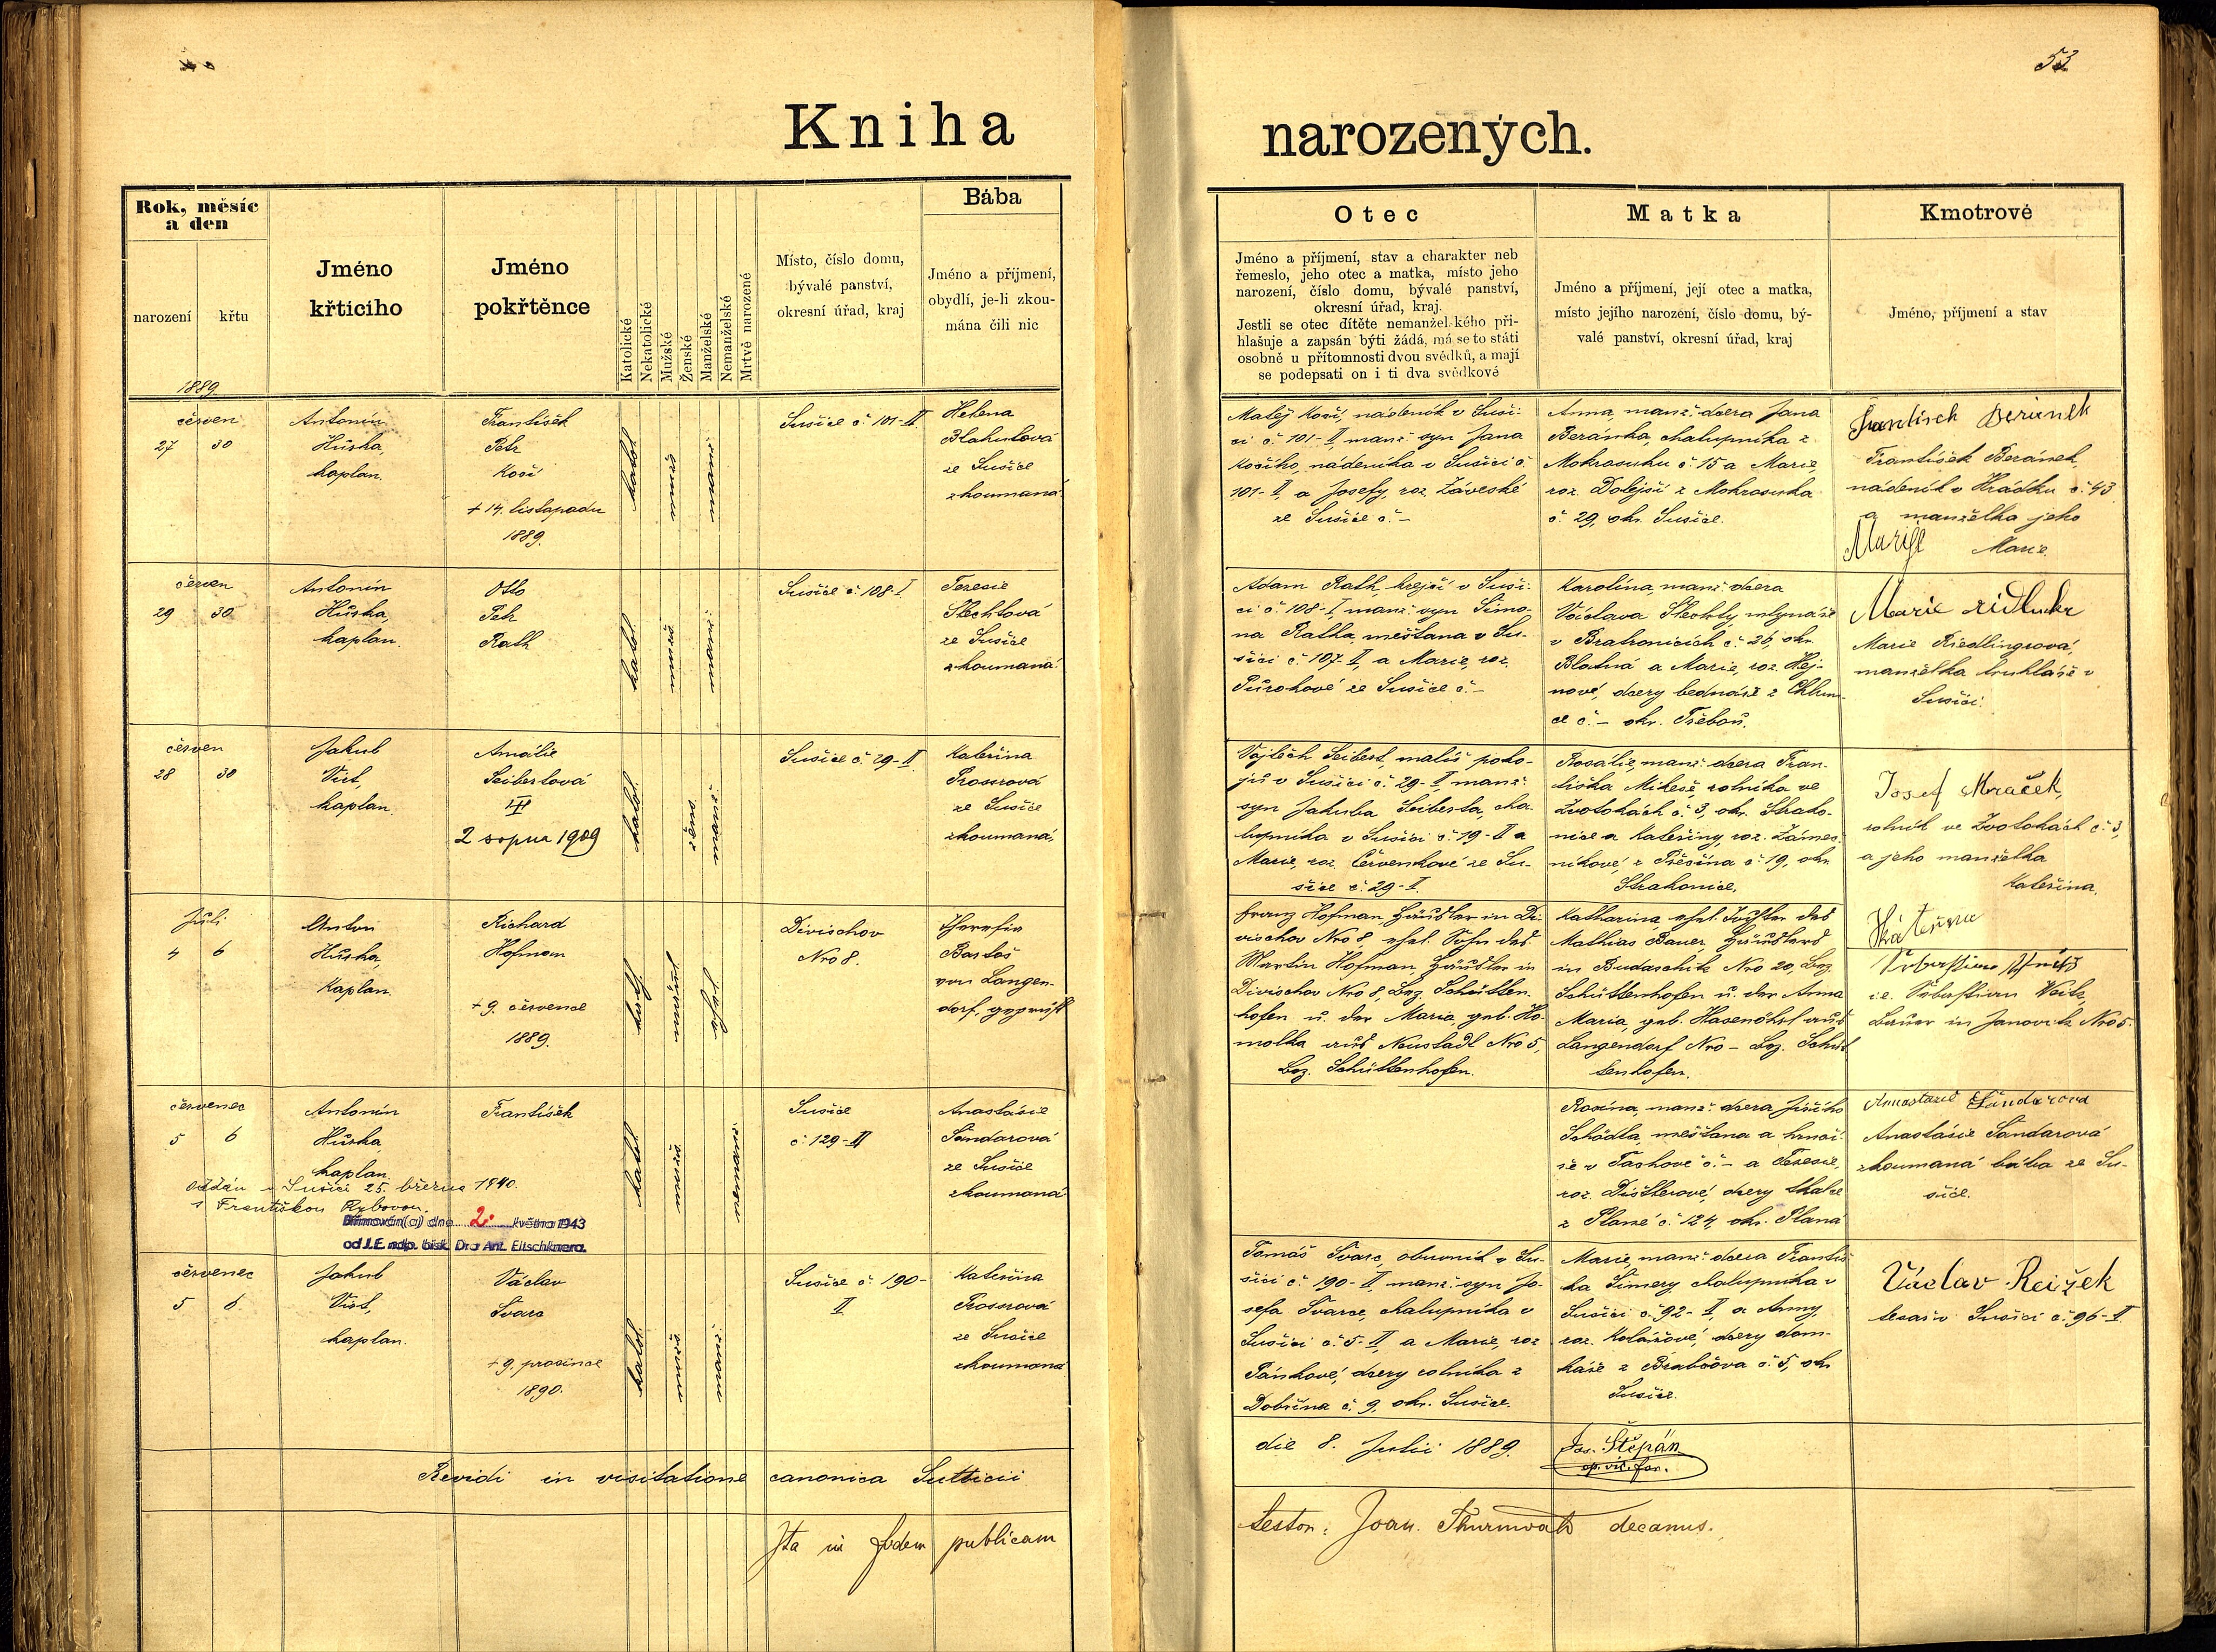 53
Kniha
narozených.
Rok, měsíc
a den
narození
křtu
Jméno
křticího
Jméno
pokřtěnce
Katolické
Nekatolické
Mužské
Ženské
Manželské
Nemanželské
Mrtvě narozené
Místo, číslo domu,
bývalé panství,
okresní úřad, kraj
Bába
Jméno a příjmení,
obydlí, je-li zkou-
mána čili nic
Otec
Jméno a příjmení, stav a charakter neb
řemeslo, jeho otec a matka, místo jeho
narození, číslo domu, bývalé panství,
okresní úřad, kraj.
Jestli se otec dítěte nemanželského při-
hlašuje a zapsán býti žádá, má se to státi
osobně u přítomnosti dvou svědků, a mají
se podepsati on i ti dva svědkové
Matka
Jméno a příjmení, její otec a matka,
místo jejího narození, číslo domu, bý-
valé panství, okresní úřad, kraj
Kmotrové
Jméno, příjmení a stav
1889.
červen
27 30
Antonín
Hůrka,
kaplan.
František
Petr
Kočí
+ 14. listopadu
1889.
katol.
mužs.
manž.
Sušice č. 101-II.
Helena
Blahutová
ze Sušice
zkoumaná.
Matěj Kočí, nádeník v Suši-
ci č. 101-II, manž. syn Jana
Kočího, nádeníka v Sušici č.
101-II, a Josefy, roz. Záveské
ze Sušice č. -
Anna, manž. dcera Jana
Beránka, chalupníka z
Mokrosuku č. 15 a Marie,
roz. Dolejší z Mokrosuku
č. 29, okr. Sušice.
František Beránek,
nádeník v Hrádku č. 43
a manželka jeho
Marie.
červen
29 30
Antonín
Hůrka,
kaplan.
Otto
Petr
Rath
katol.
mužs.
manž.
Sušice č. 108-I.
Terezie
Šlechtová
ze Sušice
zkoumaná.
Adam Rath, krejčí v Suši-
ci č. 108-I, manž. syn Šimo-
na Ratha, měšťana v Su-
šici č. 107-II, a Marie, roz.
ze Sušice č. -
Karolína, manž. dcera
Václava Šlechty, mlynáře
v Bratronicích č. 26, okr.
Blatná a Marie, roz. Hej-
nové, dcery bednáře z Chlum-
ce č. - okr. Třeboň.
Marie
Marie Riedlingrová,
manželka truhláře v
Sušici.
červen
28 30
Jakub
Vírt,
kaplan.
Amálie
Seibertová
2 srpna 1909
katol.
žens.
manž.
Sušice č. 29-II.
Kateřina
Prosrová
ze Sušice
zkoumaná.
Vojtěch Seibert, malíř poko-
jů v Sušici č. 29-I, manž.
syn Jakuba Seiberta, cha-
lupníka v Sušici č. 19-II a
Marie, roz. Červenkové ze Su-
šice č. 29-I.
Rosálie, manž. dcera Fran-
tiška Mikeše, rolníka ve
Zvotokách č. 3, okr. Strako-
nice a Kateřiny, roz.
níkové, z č. 19, okr.
Strakonice.
Josef Mraček,
rolník ve Zvotokách č. 3,
a jeho manželka
Kateřina.
Kateřina
Juli
4 6
Anton
Hůrka,
Kaplan.
Richard
Hofman
+ 9. července
1889.
kath.
männl.
ehel.
Divischov
Nro 8.
Josefia
Bartoš
von Langen-
dorf, geprüft
Franz Hofman, Häusler in Di-
vischov Nro 8, ehel. Sohn des
Martin Hofman, Häusler in
Divischov Nro 8, Bez. Schütten-
hofen u. der Maria, geb. Ho-
molka aus Neustadl Nro 5,
Bez. Schüttenhofen.
Katharina, ehel. Tochter des
Mathias Bauer, Häuslers
in Budaschitz Nro 20, Bez.
Schüttenhofen u. der Anna
Maria, geb. Hasenöhrl aus
Langendorf Nro - Bez. Schüt-
tenhofen.
i.e. Sebastian Veitz,
Bauer in Janovitz Nro 5.
červenec
5 6
Antonín
Hůrka,
kaplan.
František
oddán v Sušici 25. března 1940.
s Františkou Rybovou.
Biřmován(a) dne 2. května 1943
od J.E. ndp. bisk. Dra Ant. Eltschknera.
katol.
mužs.
nemanž.
Sušice
č. 129-II
Anastásie
Šandarová
ze Sušice
zkoumaná
Rosina, manž. dcera Jiřího
Schödla, měšťana a hrnčí-
ře v Tachově č. - a Terezie,
roz. Dištlerové, dcery tkalce
z Plané č. 124, okr. Planá
Anastazie Šandarová
Anastásie Šandarová
zkoumaná bába ze Su-
šice.
červenec
5 6.
Jakub
Vírt,
kaplan.
Václav
Švarc
+ 9. prosince
1890.
katol.
mužs.
manž.
Sušice č. 190-
II
Kateřina
Prosrová
ze Sušice
zkoumaná
Tomáš Švarc, obuvník v Su-
šici č. 190-II, manž. syn Jo-
sefa Švarce, chalupníka v
Sušici č. 5-II, a Marie, roz.
Pánkové, dcery rolníka z
Dobršína č. 9, okr. Sušice.
Marie, manž. dcera Františ-
ka Šimery, chalupníka v
Sušici č. 92-II, a Anny,
roz. Kolářové, dcery dom-
káře z Brabčova č. 5, okr.
Sušice.
Václav Reižek
tesař v Sušici č. 96-II.
Revidi in visitatione canonica Sutticii
die 8. Julii 1889.
Jos. Štěpán
ep. vic. for.
Ita in fidem publicam
testor: Joan. Thurnwald decanus.